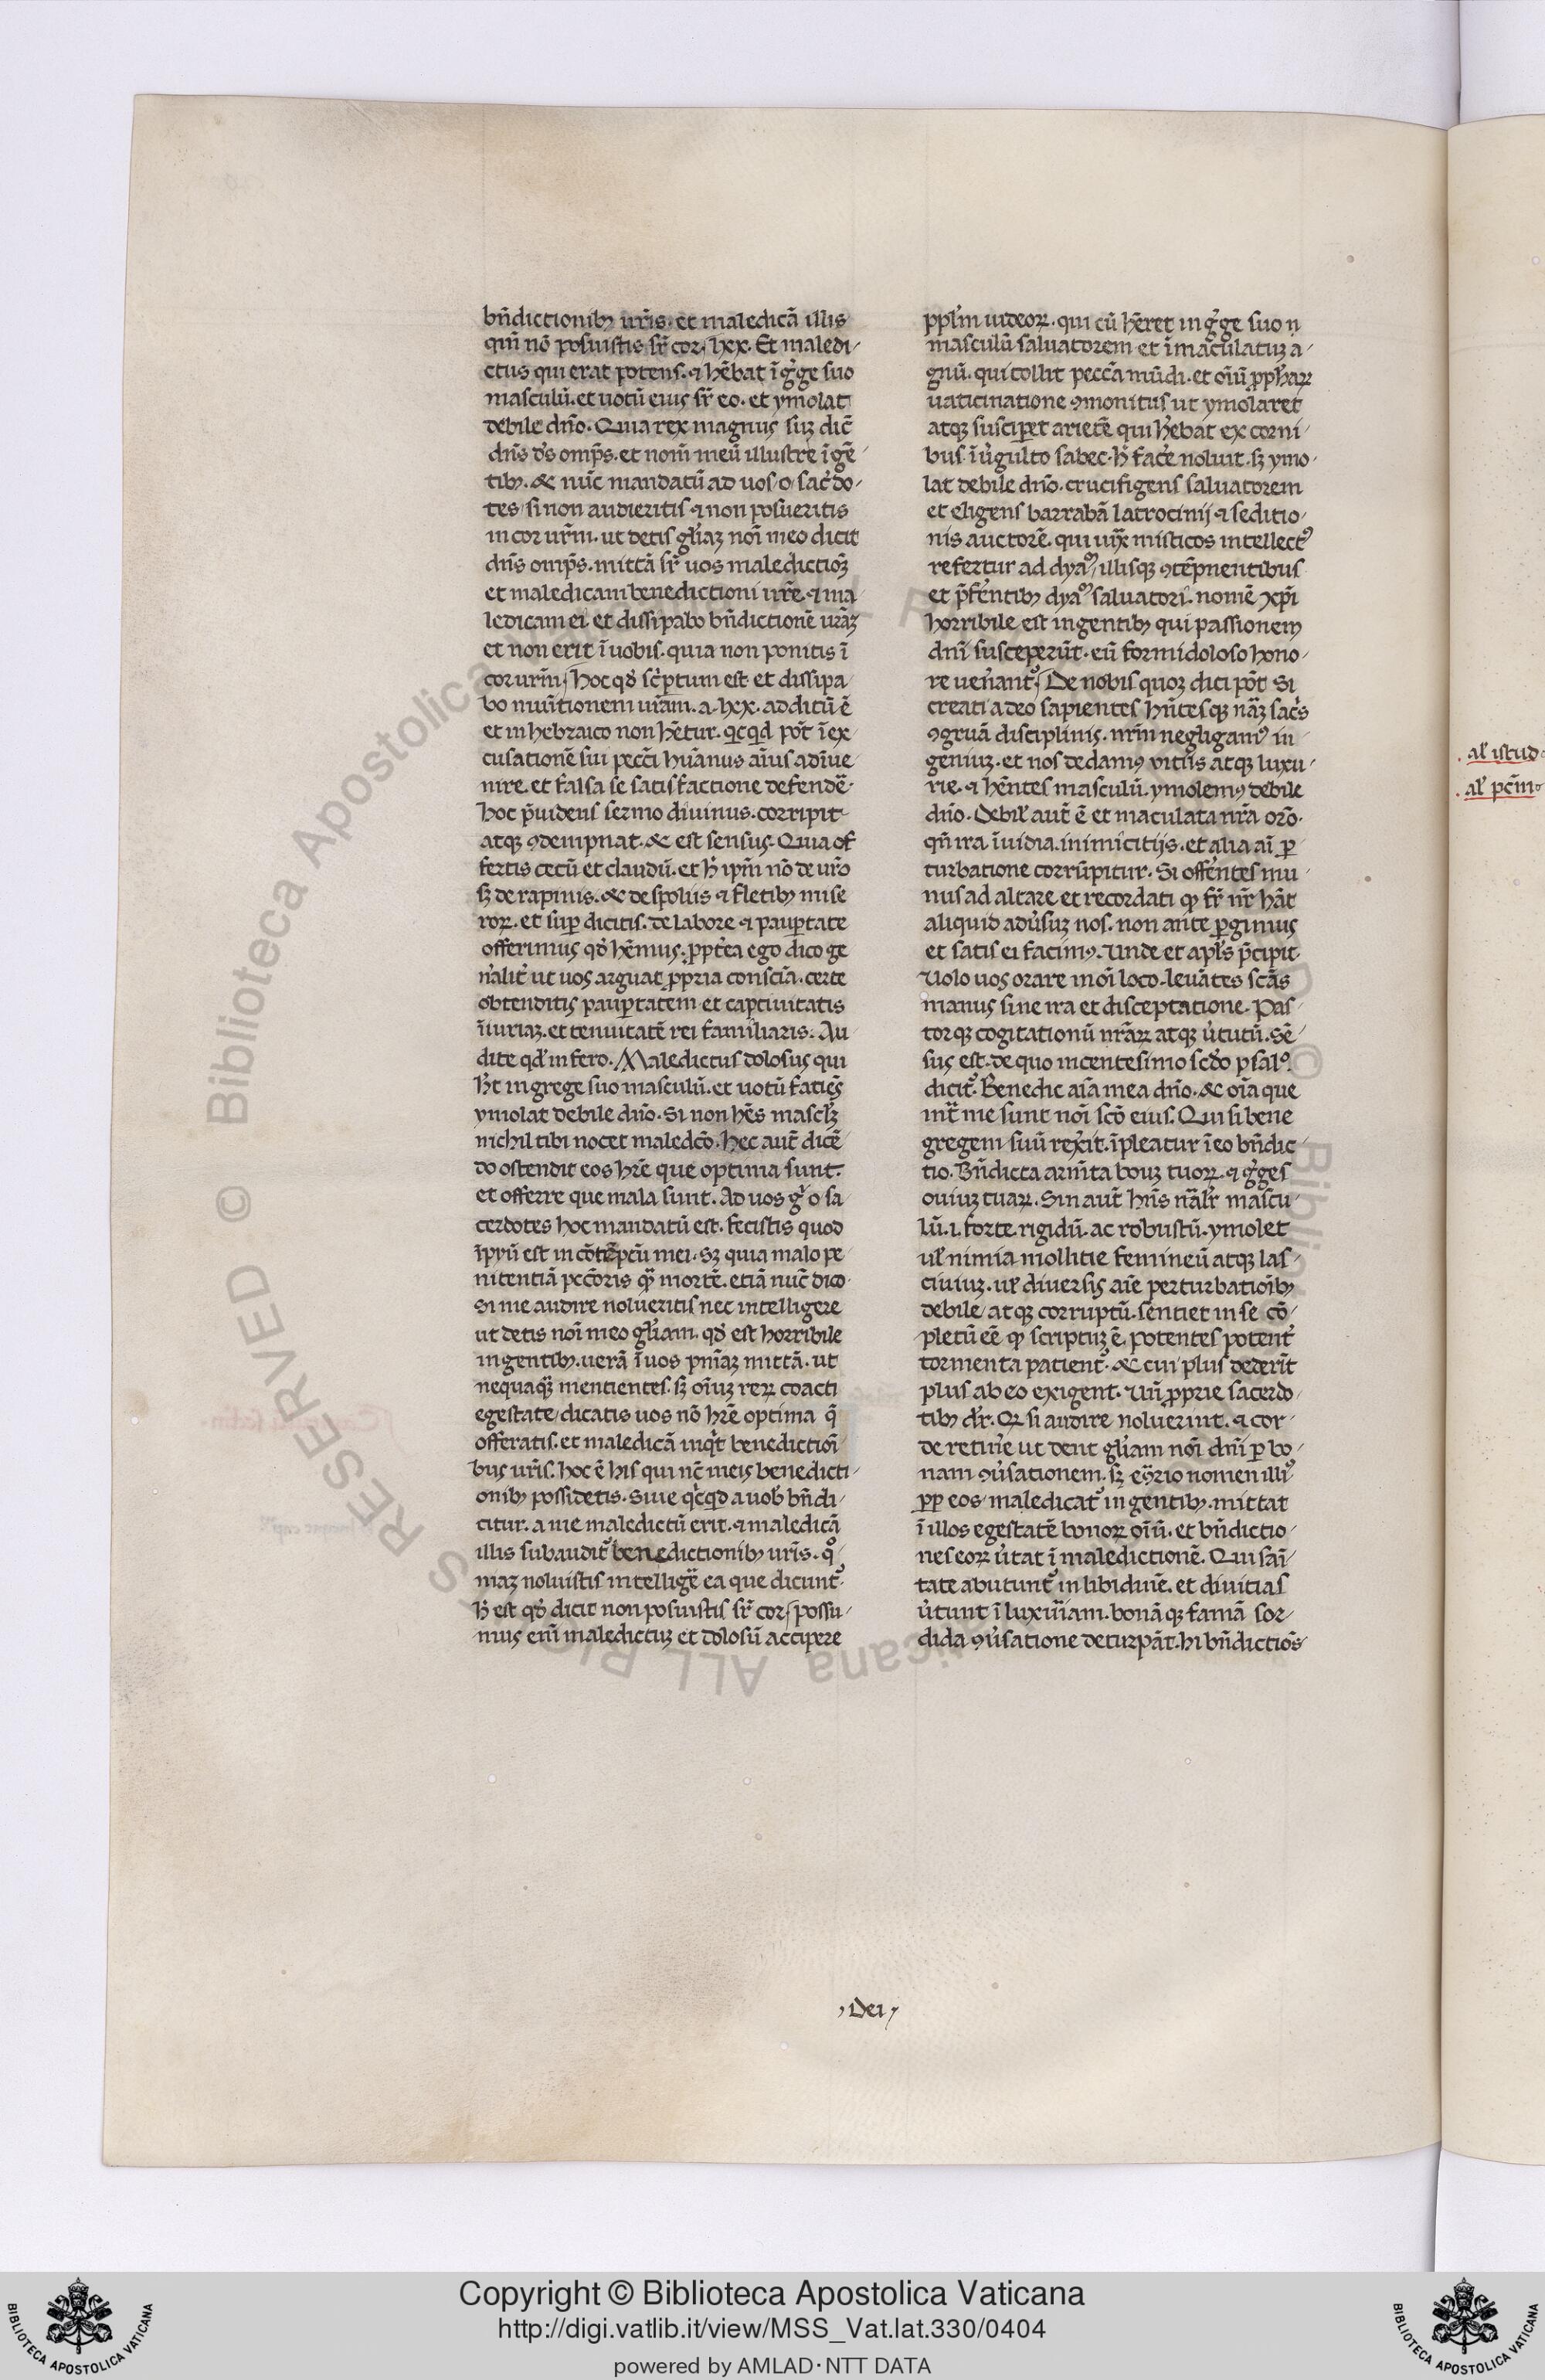 bn̄dictionibꝫ ur̄is. et maledicā illis
qm̄ nō posuistis sr̄ cor. lxx. Et maledi
ctus qui erat potens. ⁊ hēbat ī gͥge suo
masculū. et uotū eius sr̄ eo. et ymolat
debile dn̄o. Quia rex magnus suꝫ dic̄
dn̄s dˢ omp̄s. et nom̄ meū illustre ī gē
tibꝫ. & nūc mandatū ad uos o sac̄do
tes si non audieritis ⁊ non posueritis
in cor ur̄m. ut detis gl̄iaꝫ noī meo dicit
dn̄s omp̄s. mittā sr̄ uos maledictiōꝫ
et maledicam benedictioni ur̄e. ⁊ ma
ledicam ei et dissipabo bn̄dictionē ur̄aꝫ
et non erit ī uobis. quia non ponitis ī
cor ur̄m Hoc qđ sc̄ptum est et dissipa
bo munitionem ur̄am. a. lxx. additū ē
et in hebraico non hētur. qͥcqͥd pōt ī ex
cusationē sui pecc̄i humanus aīus adīue
nire. et falsa se satisfactione defendē.
Hoc p̄uidens sermo diuinus. corripit
atqꝫ ꝯdempnat. & est sensus. Quia of
fertis cecū et claudū. et h̄ ip̄m nō de ur̄o
sꝫ de rapinis. & de spoliis ⁊ fletibꝫ mise
roꝝ. et suꝑ dicitis. de labore ⁊ pauꝑtate
offerimus qđ hēmus. ꝓpt̄ea ego dico ge
n̄alit̄ ut uos arguat ꝓpria conscīa. certe
obtenditis pauꝑtatem et captiuitatis
īiuriaꝫ. et tenuitatē rei familiaris. Au
dite qđ infero. Maledictus dolosus qui
h̄t in grege suo masculū. et uotū faciēs
ymolat debile dn̄o. Si non hēs mascl̄ꝫ
nichil tibi nocet maledc̄o. Hec aut̄ dicē
do ostendit eos hr̄e que optima sunt.
et offerre que mala sunt. Ad uos gͦ o sa
cerdotes hoc mandatū est. fecistis quod
īpiū est in cōtēptū mei. Sꝫ quia malo pe
nitentiā pecc̄oris qͣꝫ mortē. etiā nūc dico.
Si me audire nolueritis nec intelligere
ut detis noī meo gl̄iam. qđ est horribile
in gentibꝫ. uerā ī uos pn̄iaꝫ mittā. ut
nequaqͣꝫ mentientes. sꝫ oīuꝫ reꝝ coacti
egestate dicatis uos nō hr̄e optima q̄
offeratis. et maledicā inqͥt benedictioī
bus ur̄is. hoc ē his qui nc̄ meis benedicti
onibꝫ possidetis. Siue qͥcqͥd a uob̄ bn̄di
citur. a me maledictū erit. ⁊ maledicā
illis subaudit᷑ benedictionibꝫ ur̄is. qͦ
niaꝫ noluistis intelligē ea que dicunt᷑.
H̄ est qđ dicit non posuistis sr̄ cor possu
mus enī maledictuꝫ et dolosū accipere
ppl̄m iudeoꝝ. qui cū hēret in gͥge suo ri
masculū saluatorem et īmaculatuꝫ a
gnū. qui tollit pecc̄a mūdi. et oīū ꝓph̄aꝝ
uaticinatione ꝯmonitus ut ymolaret
atqꝫ susciꝑet arietē qui h̄ebat ex corni
bus ī uͥgulto sabec. h̄ fac̄e noluit. sꝫ ymo
lat debile dn̄o. crucifigens saluatorem
et eligens barrabā latrocinij ⁊ seditio
nis auctorē. qui iuꝯ̄ misticos intellectꝰ
refertur ad dyaᵒᵐ illisqꝫ ꝯtēpnentibus
et p̄fēntibꝫ dyaᵒᵐ saluatori. nomē xp̄i
horribile est in gentibꝫ qui passionem
dnī susceperūt. eū formidoloso hono
re uen̄ant᷑ De nobis quoꝫ dici pōt Si
creati a deo sapientes hn̄tesqꝫ nāꝫ sac̄s
ꝯgruā disciplinis. nr̄m negligamꝰ in
geniuꝫ. et nos dedamꝰ vitiis atqꝫ luxu
rie. ⁊ hēntes masculū. ymolemꝰ debile
dn̄o. Debil̄ aut̄ ē et maculata nr̄a or̄o.
qn̄ ira īuidia. inimicitijs. et alia aī ꝑ
turbatione corrūpitur. Si offēntes mu
nus ad altare et recordati qꝫ fr̄ nr̄ hāt
aliquid adūsuꝫ nos. non ante ꝑgimus
et satis ei facimꝰ. Unde et apl̄s p̄cipit.
Volo uos orare in oī loco. leuātes sc̄as
manus sine ira et disceptatione. Pas
torqꝫ cogitationū nr̄aꝝ atqꝫ ūtutū. sē
sus est. de quo in centesimo sc̄do psalᵒ.
dicit᷑. Benedic aīa mea dn̄o. & oīa que
int̄ me sunt noī sc̄o eius. Qui si bene
gregem suū rex̄it. īpleatur ī eo bn̄dic
tio. Bn̄dicta arm̄ta bouꝫ tuoꝝ. ⁊ gͥges
ouiuꝫ tuaꝝ. Sin aut̄ hn̄s nāl̄r mascu
lū. i. forte. rigidū. ac robustū. ymolet
ul̄ nimia mollitie femineū atqꝫ las
ciuiuꝫ. ul̄ diuersis aīe perturbationībꝫ
debile atqꝫ corruptū. sentiet in se cō
pletū eē qꝫ scriptuꝫ ē. potentes potent̄
tormenta patient᷑. & cui plus dederīt
plus ab eo exigent. Uū ꝓprie sacerdo
tibꝫ dr̄. Qꝫ si audire noluerint. ⁊ cor
de retine ut dent gl̄iam noī dnī ꝑ bo
nam ꝯūsationem. sꝫ eꝯrio nomen illiꝰ
ꝓp eos maledicat᷑ in gentibꝫ. mittat
ī illos egestatē bonoꝝ oīū. et bn̄dictio
nes eoꝝ ūtat ī maledictionē. Qui saī
tate abutunt᷑ in libidinē. et diuitias
ūtunt ī luxuriam. bonāqꝫ famā sor
dida ꝯūsatione deturpāt. hi bn̄dictiōs
Dei
al̄ istud
al̄ pc̄m
Copyright © Biblioteca Apostolica Vaticana
http://digi.vatlib.it/view/MSS_Vat.lat.330/0404
powered by AMLAD·NTT DATA
BIBLIOTECA APOSTOLICA VATICANA
BIBLIOTECA APOSTOLICA VATICANA